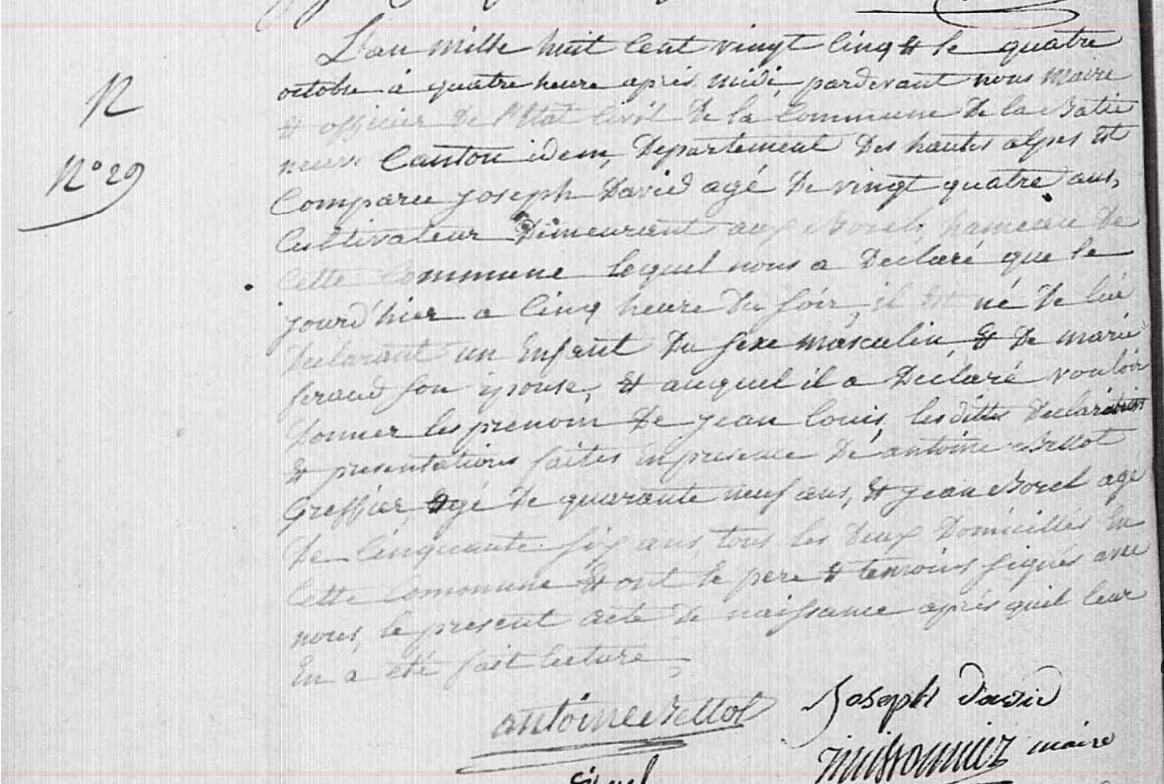 L'an mille huit cent vingt cinq & le quatre
octobre à quatre heure après midi, pardevant nous maire
& officier de l'Etat Civil de la Commune de la Batie
neuve Canton idem, Departement des hautes alpes Est
Comparu joseph David agé de vingt quatre ans,
Cultivateur Demeurant aux Borels hameau de
cette Commune lequel nous a Déclaré que le
jourd'hier a Cinq heure du soir, il est né de lui
Declarant un Enfant du sexe masculin & de marie
feraud son épouse, & auquel il a Déclaré vouloir
donner les prenom de jean louis, les dittes declarations
& presentations faites en presence de antoine Bellot
Greffier, agé de quarante neuf ans, & jean Borel agé
de Cinquante six ans, tous les deux Domicilliés En
Cette Commune & ont le pere & temoins signés avec
nous, le present acte de naissance après quil leur
En a été fait lecture
N
N° 29
antoine Bellot
Joseph david
maire